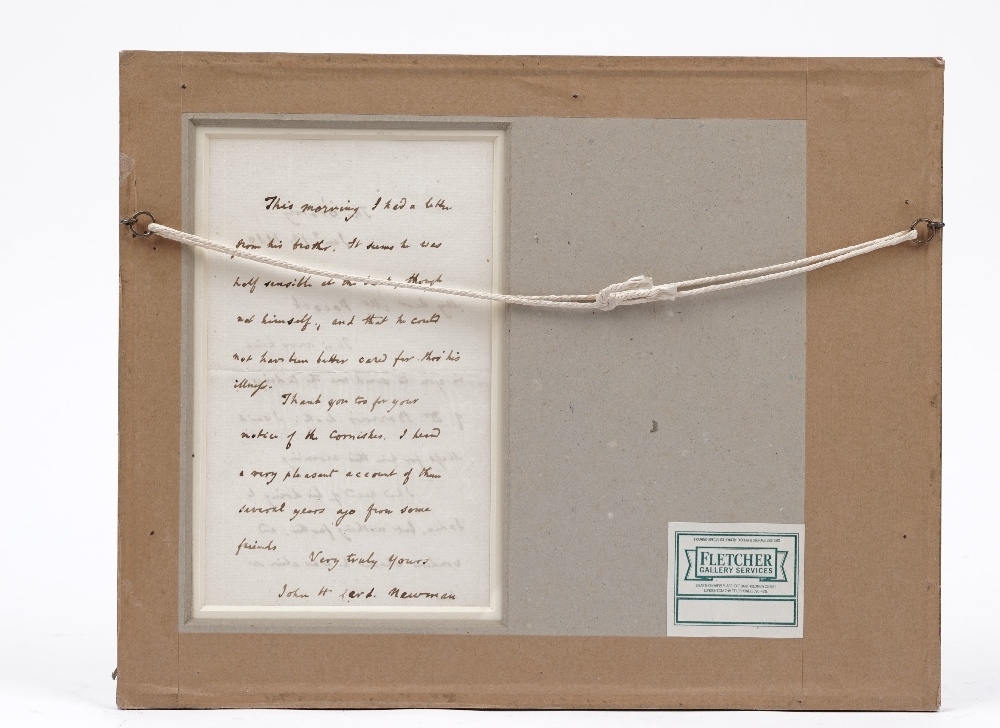 This morning I had a letter
from his brother. It seems he was
half sensible at the though
not himself, and that he could
not have been better cared for thro' his
illness.
Thank you too for your
notice of the Cornishes. I heard
a very pleasant account of them
several years ago from some
friends
Very truly yours
John H Card. Newman
FLETCHER
GALLERY SERVICES